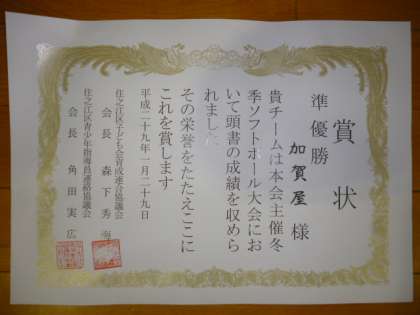 賞状
準優勝
加賀屋 様
貴チームは本会主催冬
季ソフトボール大会にお
いて頭書の成績を収めら
れました
その栄誉をたたえここに
これを賞します
平成二十九年一月二十九日
住之江区子ども会育成連合協議会
会長 森下秀
住之江区青少年指導員連絡協議会
会長 角田実広